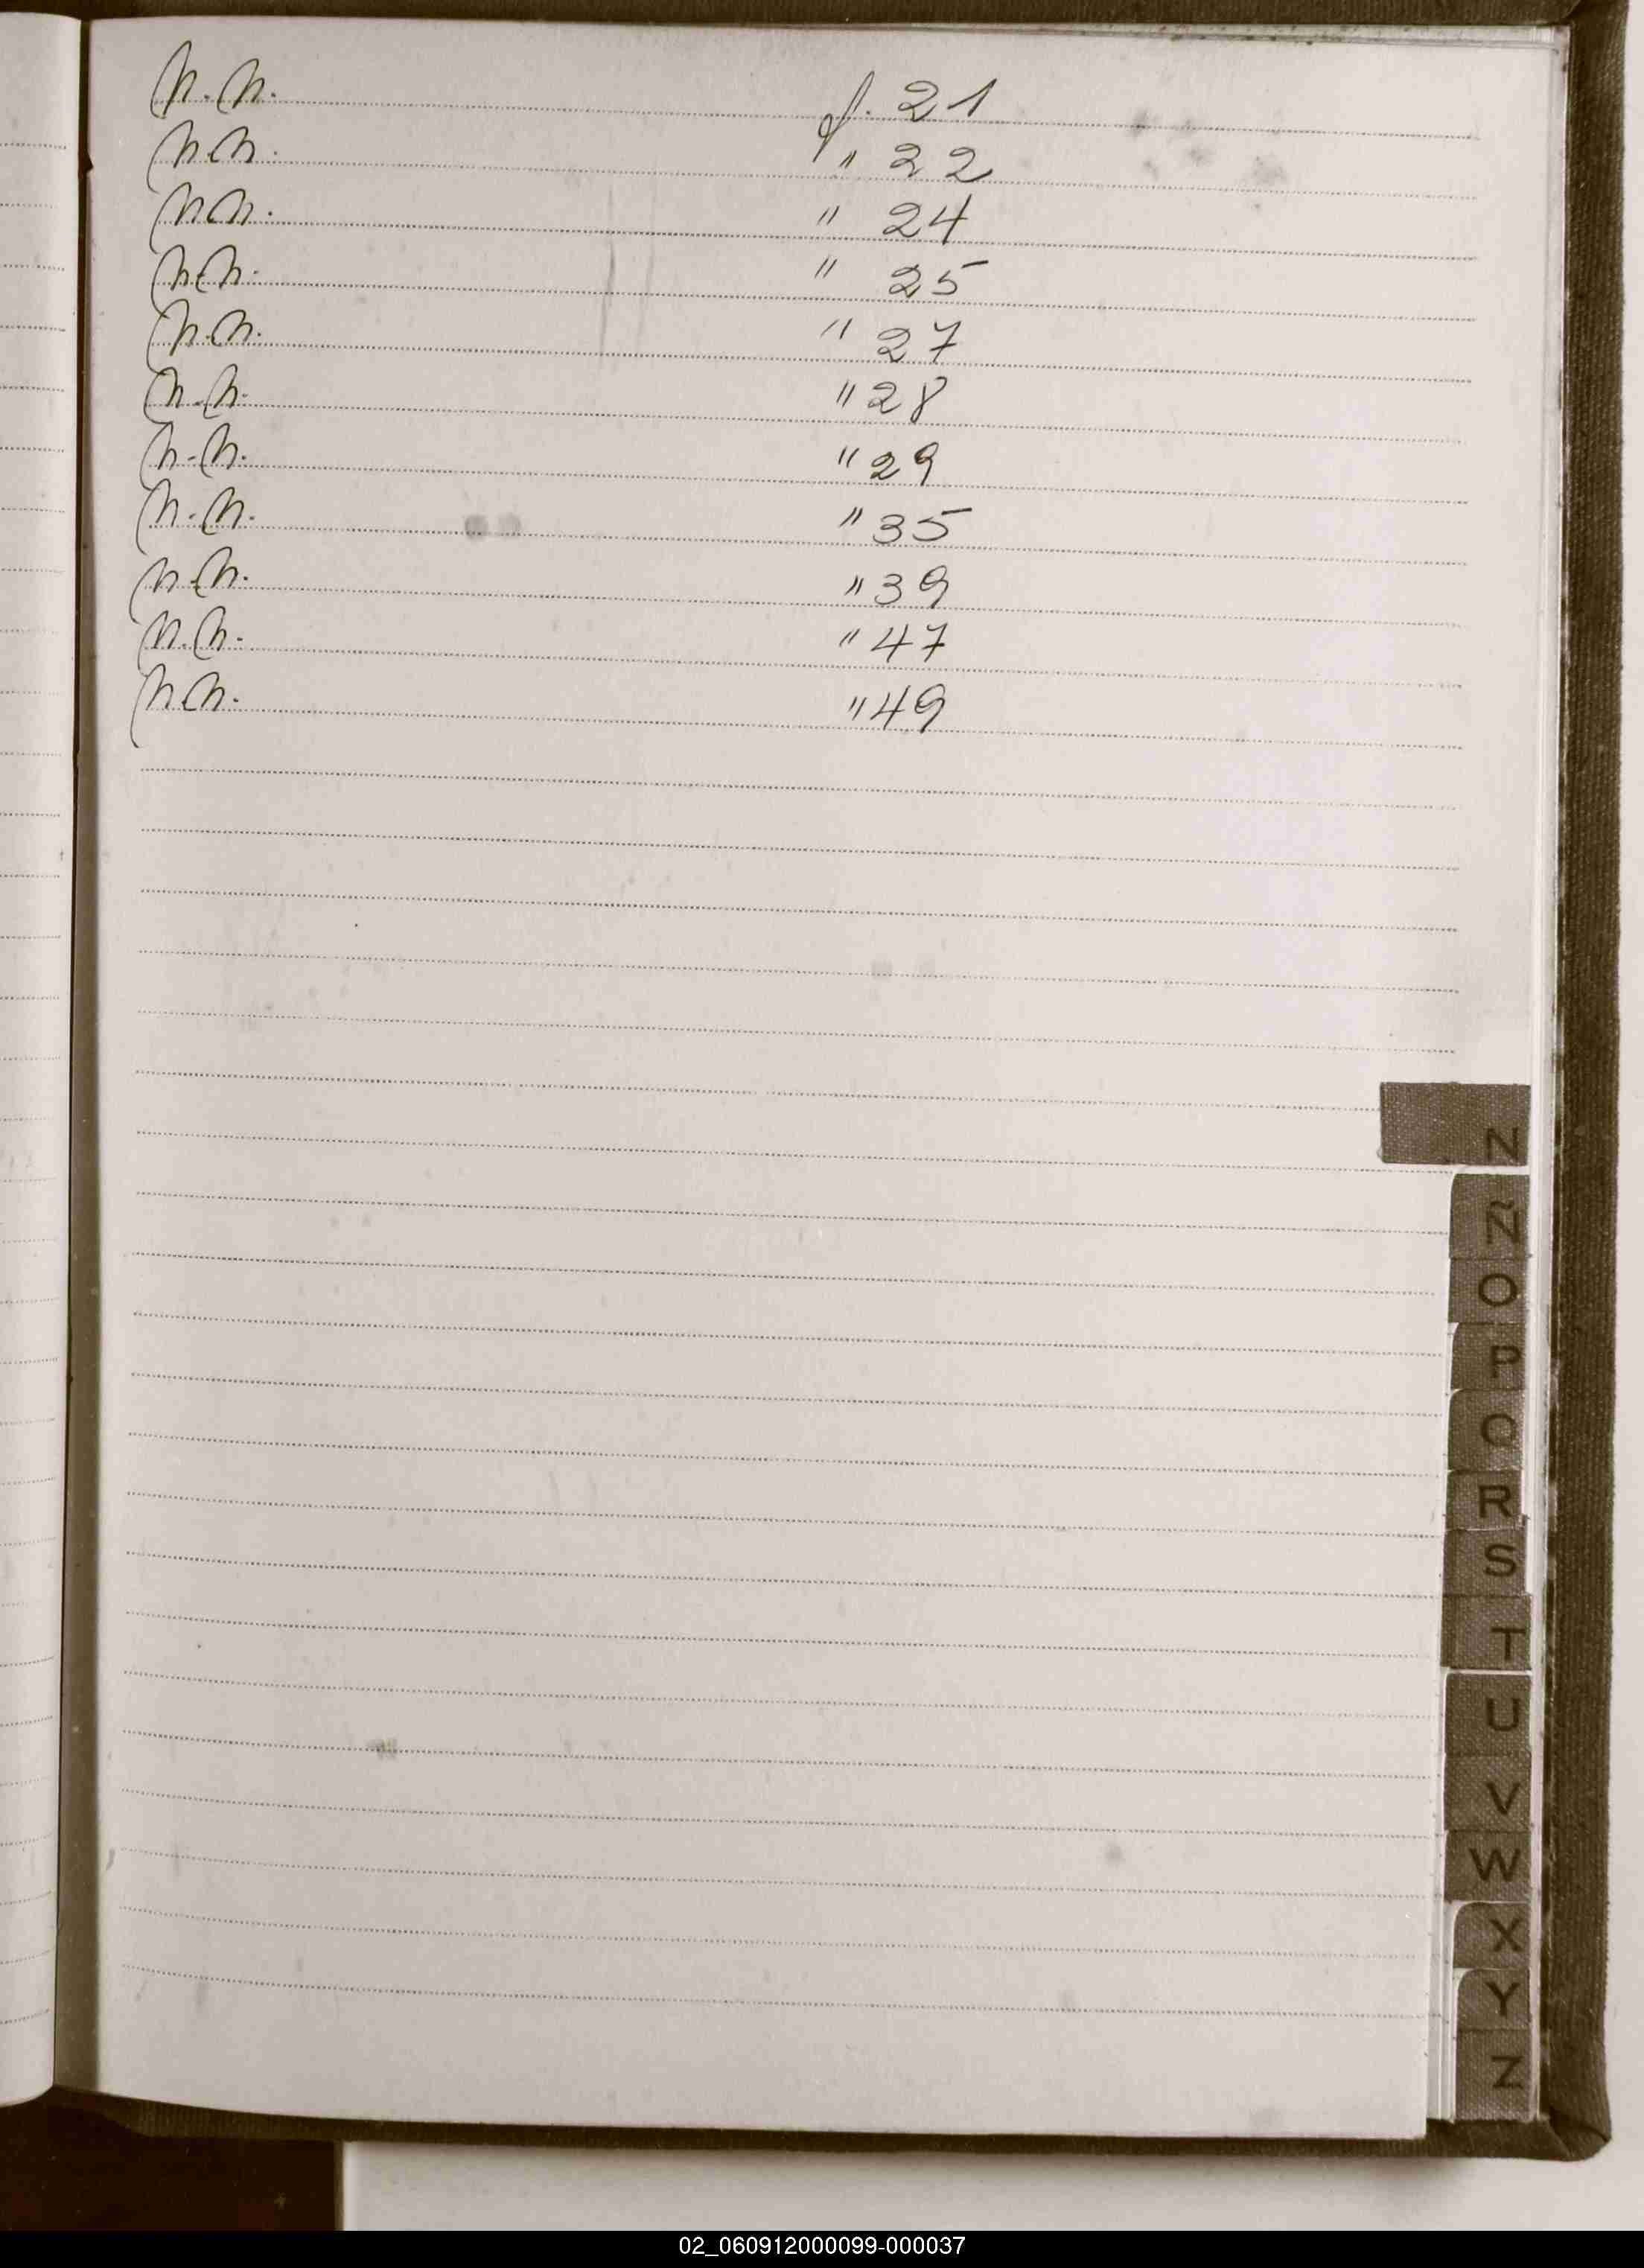 N.N. f. 21
N.N. " 22
N.N. " 24
N.N. " 25
N.N. " 27
N.N. " 28
N.N. " 29
N.N. " 35
N.N. " 39
N.N. " 47
N.N. " 49
N
Ñ
O
P
Q
R
S
T
U
V
W
X
Y
Z
02_060912000099-000037